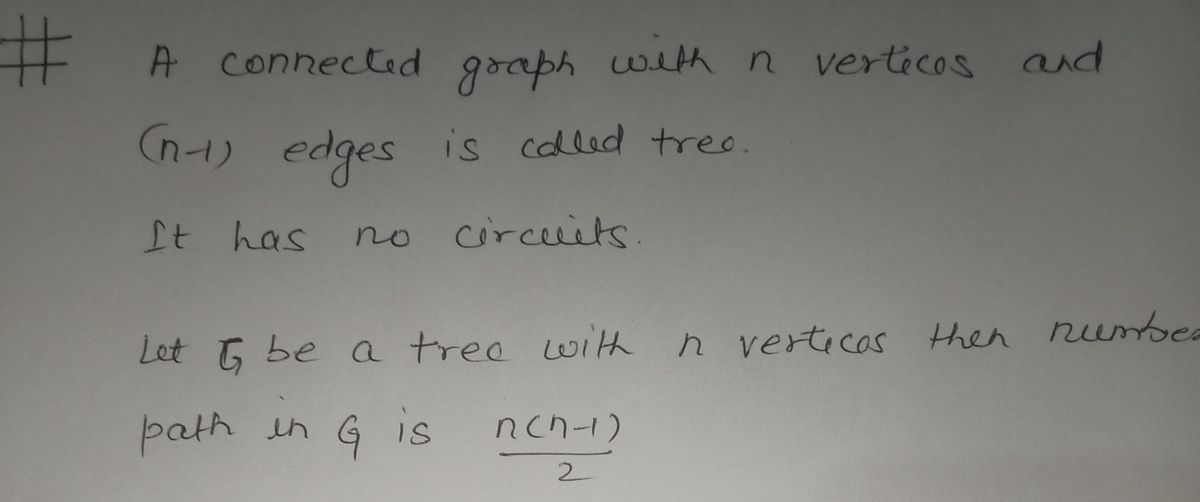 # A connected graph with n vertices and
(n-1) edges is called tree.
It has no circuits.
Let G be a tree with n vertices then number
path in G is n(n-1)/2